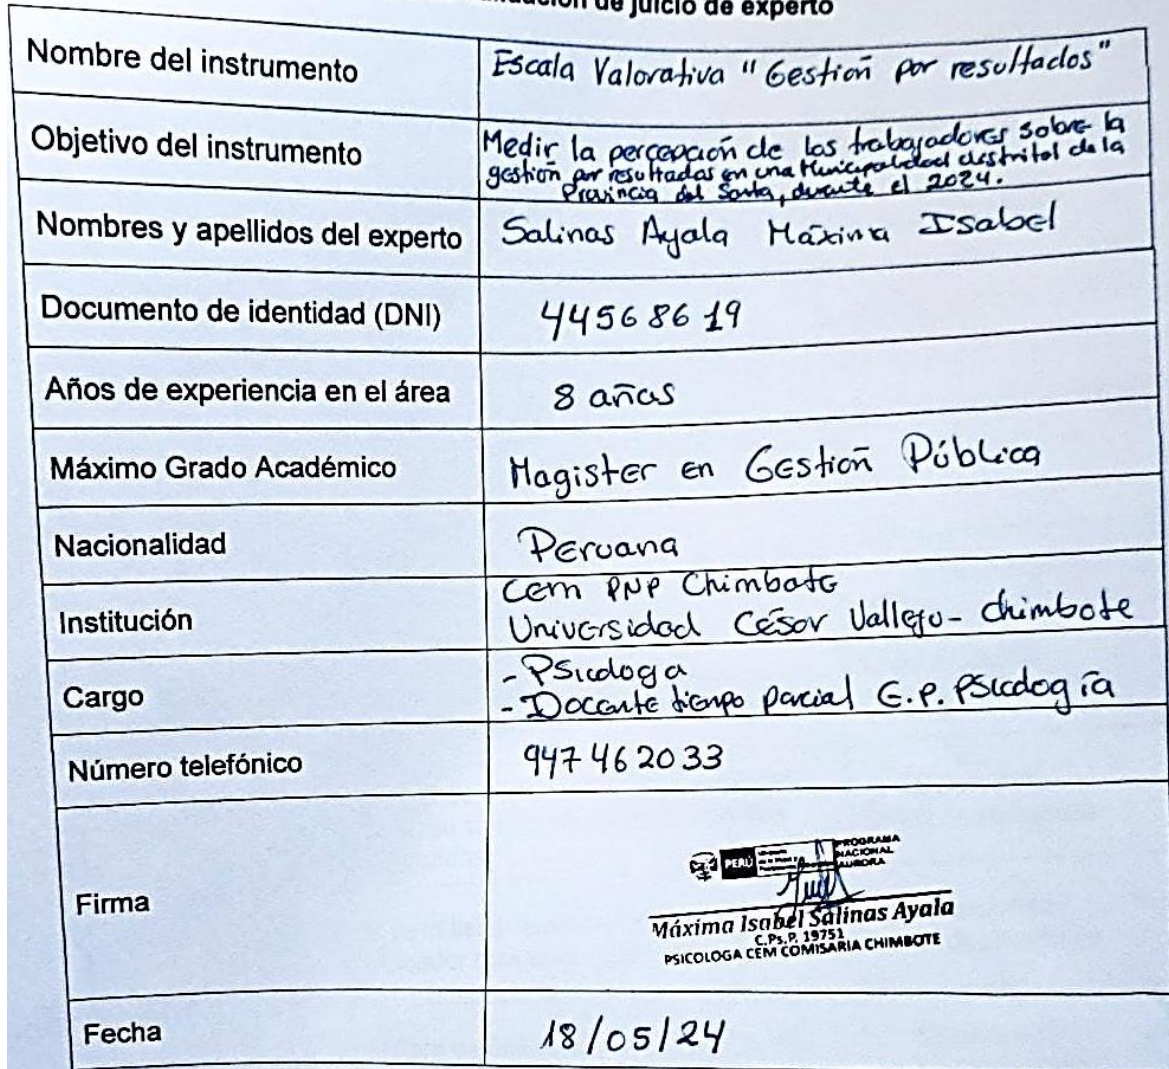 de juicio de experto
Nombre del instrumento
Escala Valorativa "Gestión por resultados"
Objetivo del instrumento
Medir la percepción de los trabajadores sobre la
gestión por resultados en una Municipalidad distrital de la
Provincia del Santa, durante el 2024.
Nombres y apellidos del experto
Salinas Ayala Máxima Isabel
Documento de identidad (DNI)
44568619
Años de experiencia en el área
8 años
Máximo Grado Académico
Magister en Gestión Pública
Nacionalidad
Peruana
Institución
Cem PNP Chimbote
Universidad César Vallejo - Chimbote
Cargo
- Psicologa
- Docente tiempo parcial E.P. Psicología
Número telefónico
947462033
Firma
PERÚ
PROGRAMA
NACIONAL
AURORA
Máxima Isabel Salinas Ayala
C.Ps.P. 19751
PSICOLOGA CEM COMISARIA CHIMBOTE
Fecha
18/05/24